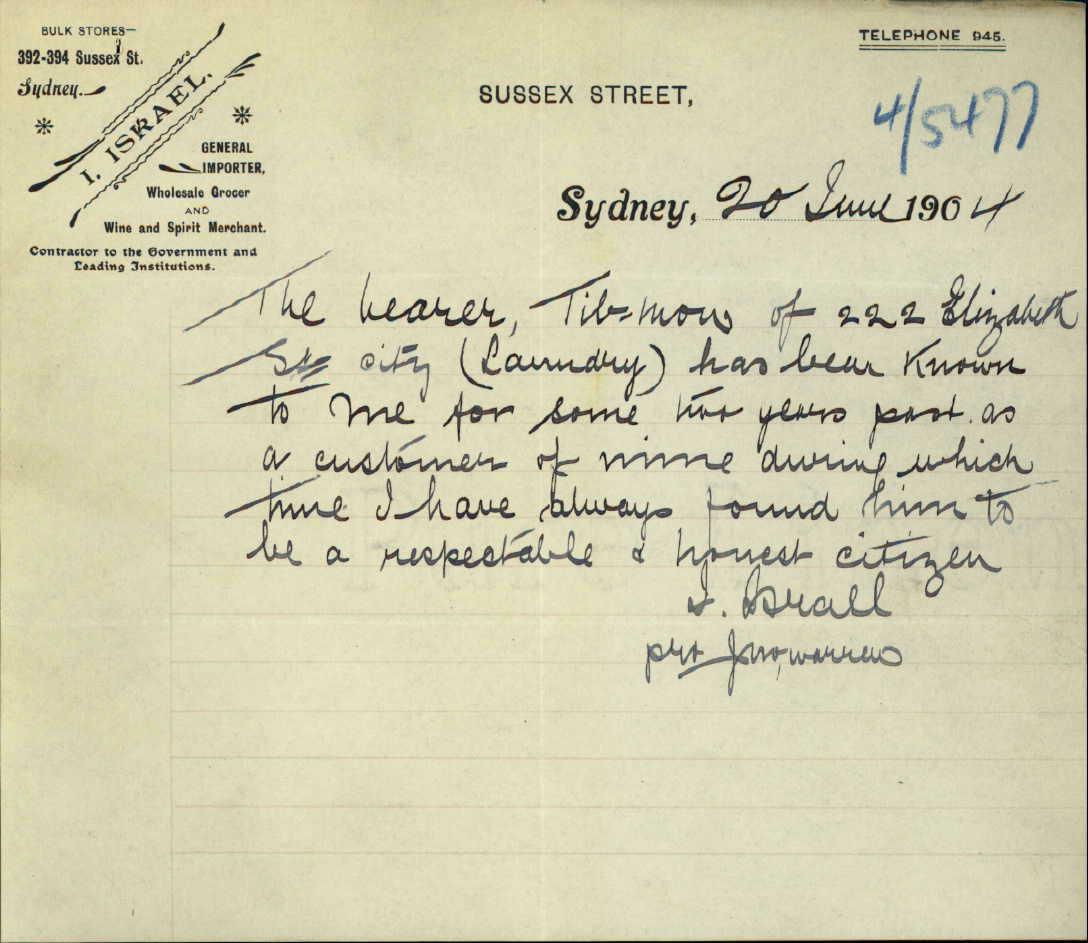 BULK STORES—
392-394 Sussex St.
Sydney.
I. ISRAEL.
GENERAL
IMPORTER,
Wholesale Grocer
AND
Wine and Spirit Merchant.
Contractor to the Government and
Leading Institutions.
TELEPHONE 945.
SUSSEX STREET,
4/5477
Sydney, 20 June 1904
The bearer, of 222 Elizabeth
St city (Laundry) has bear known
to me for some two years past as
a customer of mine during which
time I have always found him to
be a respectable & honest citizen
I. Israell
pro Jno, warren